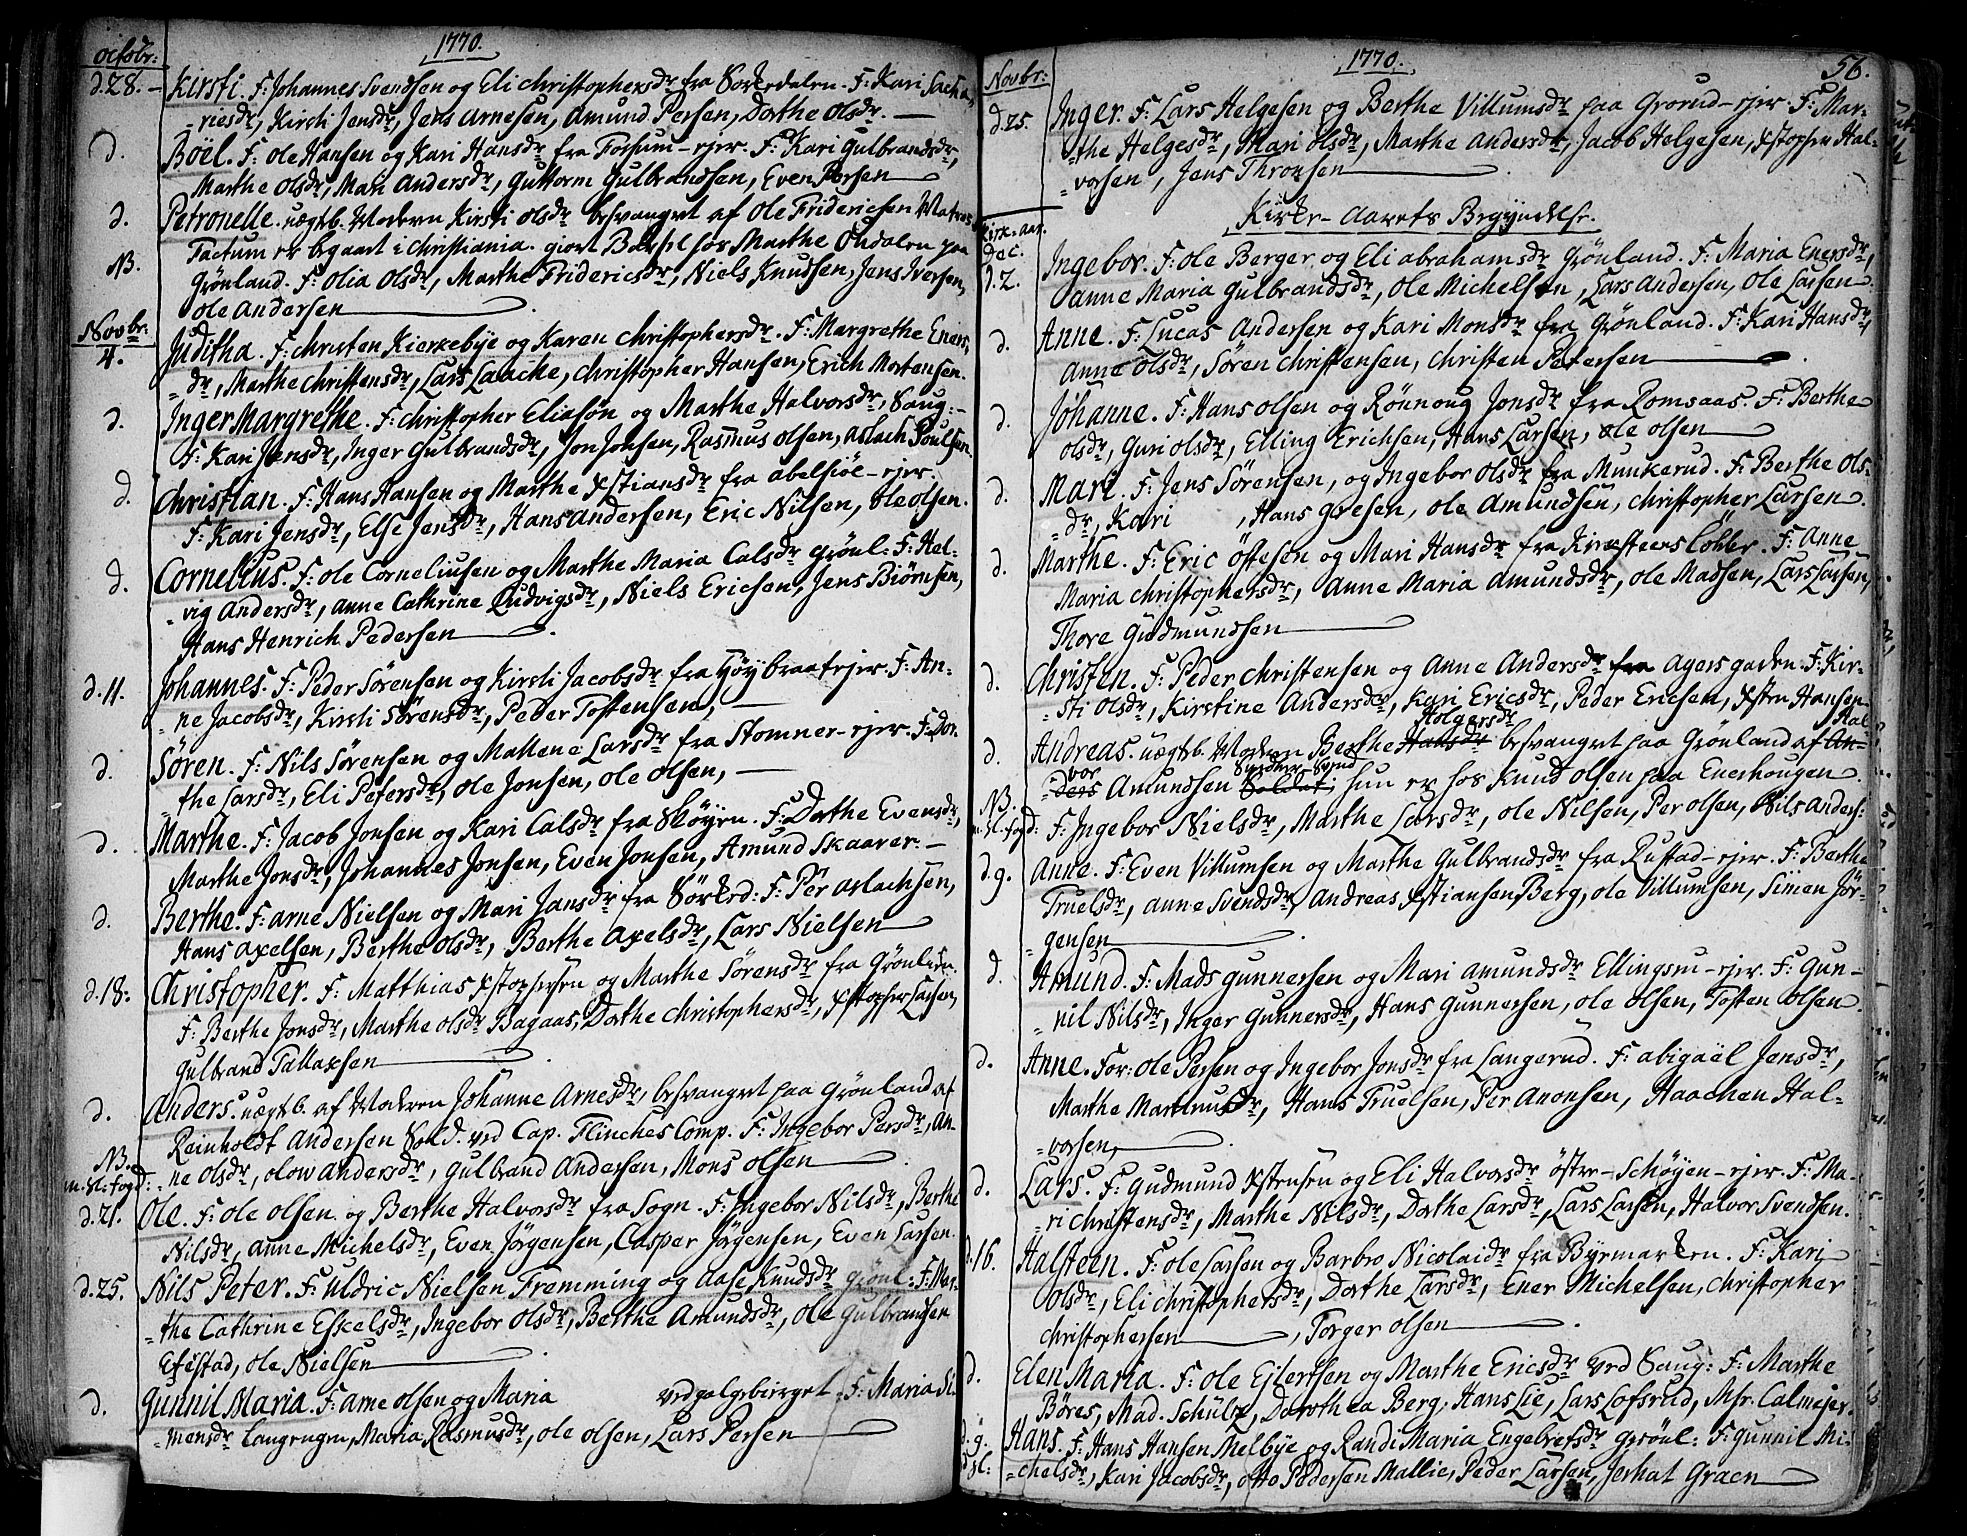 octobr: 1770.
d.28. Kirsti. F: Johannes Svendsen og Eli Christophersdr fra Sørkedalen. F: Kari Sacha-
riesdr, Kirsti Jensdr, Jens Arnesen, Amund Persen, Dorthe Olsdr.
d. Boel. F: Ole Hansen og Kari Hansdr fra Fossum-ejer. F: Kari Gulbrandsdr,
Marthe Olsdr, Mari Andersdr, Guttorm Gulbrandsen, Even Persen
d. Petronelle. uægtb. Modern Kirsti Olsdr besvangret af Ole Friderichsen Matros
Factum er begaaet i Christiania. giort Barsel hos Marthe Ondalen paa
NB. Grønland. F: Olia Olsdr, Marthe Fridericsdr, Niels Knudsen, Jens Iversen,
Ole Andersen
Novbr:
4. Juditha. F: Christen Kierkebye og Karen Christophersdr. F: Margrethe Eners-
dr, Marthe Christensdr, Lars Laache, Christopher Hansen, Erich Mortensen.
d. Inger Margrethe. F: Christopher Eliasøn og Marthe Halvorsdr, Saug:
F: Kari Jensdr, Inger Gulbrandsdr, Jon Jonsen, Rasmus Olsen, Aslach Poulsen.
d. Christian. F: Hans Hansen og Marthe Xstiansdr fra Abelsiøe-ejer.
F: Kari Jensdr, Else Jensdr, Hans Andersen, Eric Nilsen, Ole Olsen.
d. Cornelius. F: Ole Corneliusen og Marthe Maria Calsdr Grønl: F: Hel-
vig Andersdr, Anne Cathrine Ludvigsdr, Niels Ericsen, Jens Biørnsen,
Hans Henrich Pedersen
d.11. Johannes. F: Peder Sørensen og Kirsti Jacobsdr fra Høybraat ejer. F: An-
ne Jacobsdr, Kirsti Sørensdr, Peder Tostensen,
d. Søren. F: Nils Sørensen og Mallene Larsdr fra Stomner-ejer. F: Dor-
the Larsdr, Eli Petersdr, Ole Jonsen, Ole Olsen,
d. Marthe. F: Jacob Jonsen og Kari Calsdr fra Skøyen. F: Dorthe Evensdr,
Marthe Jonsdr, Johannes Jonsen, Even Jonsen, Amund Skaarer.
d. Berthe. F: Arne Nielsen og Mari Jansdr fra Sørked: F: Per Aslachsen,
Hans Axelsen, Berthe Olsdr, Berthe Axelsdr, Lars Nielsen
d.18: Christopher. F: Matthias Xstophersen og Marthe Sørensdr fra Grønlien.
F: Berthe Jonsdr, Marthe Olsdr Bagaas, Dorthe Christophersdr, Xstopher Larsen,
Gulbrand Tallaxsen
d. Anders. uægtb. af Modren Johanne Arnesdr, besvangret paa Grønland af
Reinholdt Andersen Sold. ved Cap. Flinches Comp. F: Ingebor Persdr, An-
NB. m. sl. fogd: ne Olsdr, Olow Andersdr, Gulbrand Andersen, Mons Olsen
d.21. Ole. F: Ole Olsen og Berthe Halvorsdr fra Sogn. F: Ingebor Nilsdr, Berthe
Nilsdr, Anne Michelsdr, Even Jørgensen, Casper Jørgensen, Even Larsen.
d.25. Nils Peter. F: Uldric Nielsen Fremming og Aase Knudsdr Grønl: F: Mar-
the Cathrine Eskelsdr, Ingebor Olsdr, Berthe Amundsdr, Ole Gulbrandsen
Efistad, Ole Nielsen
d. Gunnil Maria. F: Arne Olsen og Maria ved galgebierget. F: Maria Si-
mensdr Langengen, Maria Rasmusdr, Ole Olsen, Lars Persen
Novbr: 1770. 56.
d.25. Inger. F: Lars Helgesen og Berthe Villumsdr paa Grorud-ejer. F: Mar-
the Helgesdr, Mari Olsdr, Marthe Andersdr, Jacob Helgesen, Xstopher Hal-
vorsen, Jens Thronsen
Kirke-Aarets Begyndelse.
Kirk-aar.
Dec.
d.2. Ingebor. F: Ole Berger og Eli Abrahamsdr Grønland. F: Maria Enersdr,
Anne Maria Gulbrandsdr, Ole Michelsen, Lars Andersen, Ole Larsen
d. Anne. F: Lucas Andersen og Kari Monsdr fra Grønland. F: Kari Hansdr,
Anne Olsdr, Søren Christensen, Christen Petersen
d. Johanne. F: Hans Olsen og Rønnoug Jonsdr fra Romsaas. F: Berthe
Olsdr, Guri Olsdr, Elling Erichsen, Hans Larsen, Ole Olsen
d. Mari. F: Jens Sørensen, og Ingebor Olsdr fra Munkerud. F: Berthe Ols-
dr, Kari , Hans Gresen, Ole Amundsen, Christopher Larsen
d. Marthe. F: Eric Østesen og Mari Hansdr fra Kræfteens Løkke. F: Anne
Maria Christophersdr, Anne Maria Amundsdr, Ole Madsen, Lars Larsen,
Thore Gudmundsen
d. Christen. F: Peder Christensen og Anne Andersdr fra Agersgaden. F: Kir-
sti Olsdr, Kirstine Andersdr, Kari Ericsdr, Peder Ericsen, Xsten Hansen
d. Andreas. uægtb. Modren Berthe Hansdr Holgersdr besvangret paa Grønland af An- Hal-
ders vor Amundsen Soldat; hun er hos Knud Olsen paa Enerhougen.
NB. m. sl. fogd: F: Ingebor Nielsdr, Marthe Larsdr, Ole Nilsen, Per Olsen, Nils Anders:
d.9. Anne. F: Even Villumsen og Marthe Gulbrandsdr fra Rustad-ejer. F: Berthe
Truelsdr, Anne Svendsdr, Andreas Xstiansen Berg, Ole Villumsen, Simen Jør-
gensen
d. Amund. F: Mads Gunnersen og Mari Amundsdr Ellingsru-ejer. F: Gun-
nil Nilsdr, Inger Gunnersdr, Hans Gunnersen, Ole Olsen, Tosten Olsen
d. Anne. For: Ole Persen og Ingebor Jonsdr fra Langerud. F: Abigaël Jensdr,
Marthe Martinusdr, Hans Truelsen, Per Aronsen, Haachen Hal-
vorsen,
d. Lars. F: Gudmund Xstensen og Eli Halvorsdr østre-Schøyen-ejer. F: Ma-
ri Christensdr, Marthe Nilsdr, Dorthe Larsdr, Lars Larsen, Halvor Svendsen.
d.16. Halsteen. F: Ole Larsen og Barbro Nicolaidr fra Byemarken. F: Kari
Olsdr, Eli Christophersdr, Dorthe Larsdr, Ener Michelsen, Christopher
Christophersen, Torger Olsen
d. Elen Maria. F: Ole Ejlertsen og Marthe Ericsdr ved Saug: F: Marthe
Børes, Mad. Schultz, Dorothea Berg, Hans Lie, Lars Lofsrud, Mr. Calmejer.
Hans. F: Hans Hansen Melbye og Randi Maria Engebretsdr Grønl: F: Gunnil Mi-
chelsdr, Kari Jacobsdr, Otto Pedersen Mallie, Peder Larsen, Graen